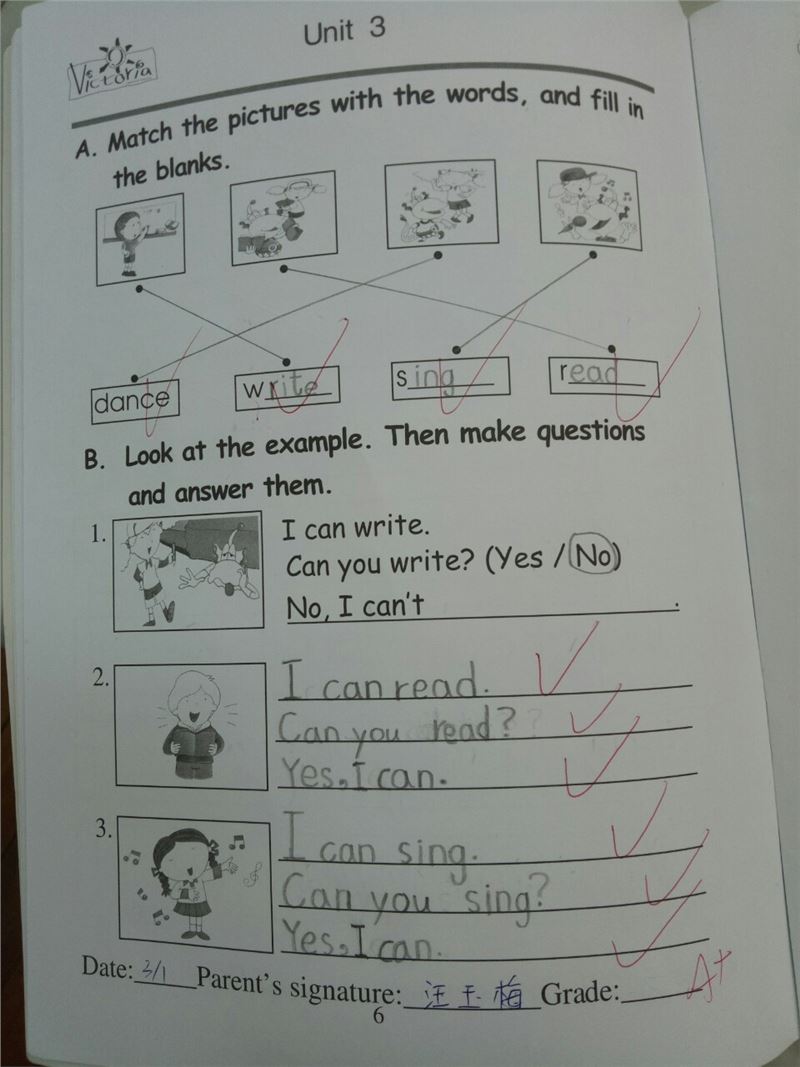 Unit 3
Victoria
A. Match the pictures with the words, and fill in
the blanks.
dance write sing read
B. Look at the example. Then make questions
and answer them.
1. I can write.
Can you write? (Yes / No)
No, I can't .
2. I can read.
Can you read?
Yes, I can.
3. I can sing.
Can you sing?
Yes, I can.
Date: 3/1 Parent's signature: 汪玉梅 Grade: A+
6